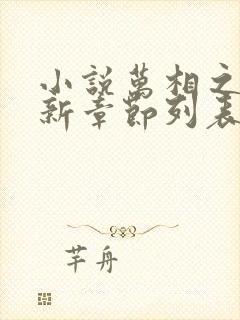 小說萬相之
新章節列表
芊舟